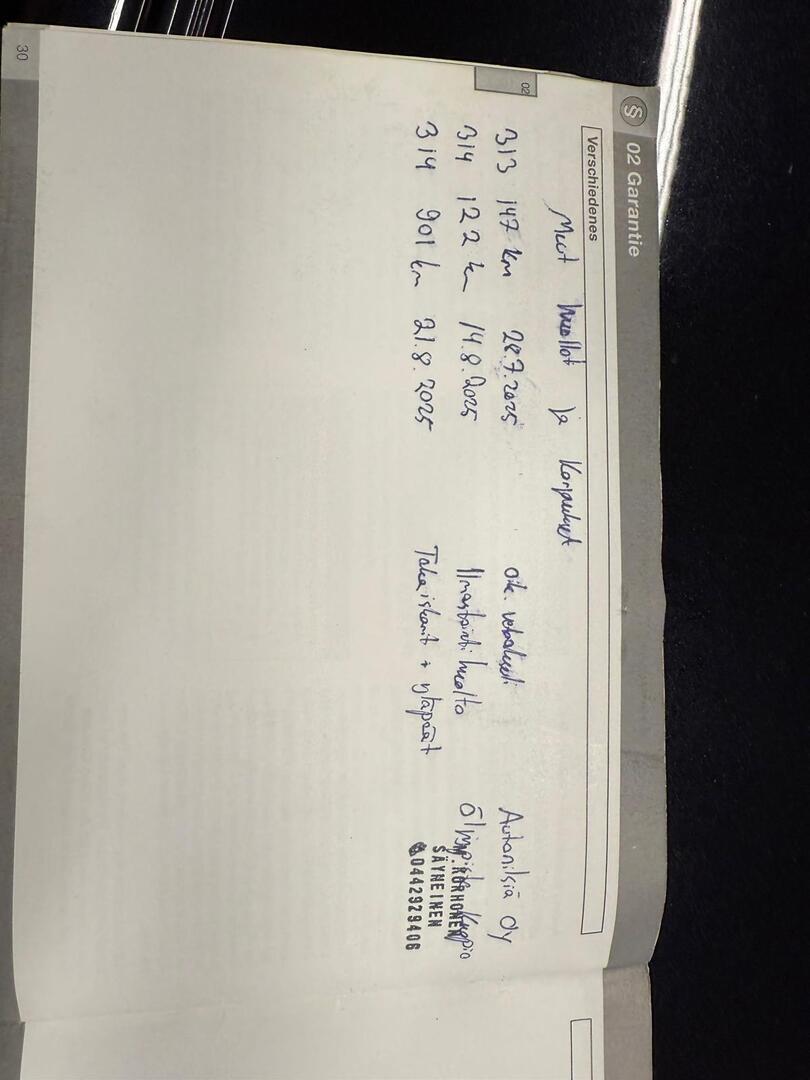 02 Garantie
Verschiedenes
Muut huollot ja korjaukset
02
313 147 km 28.7.2025 oik. vetoakseli Autoniksiä Oy
314 122 km 14.8.2025 Ilmastointi huolto Kuopio
314 901 km 21.8.2025 Takaiskarit + yläpäät
KORHONEN
SÄYNEINEN
0442929406
30